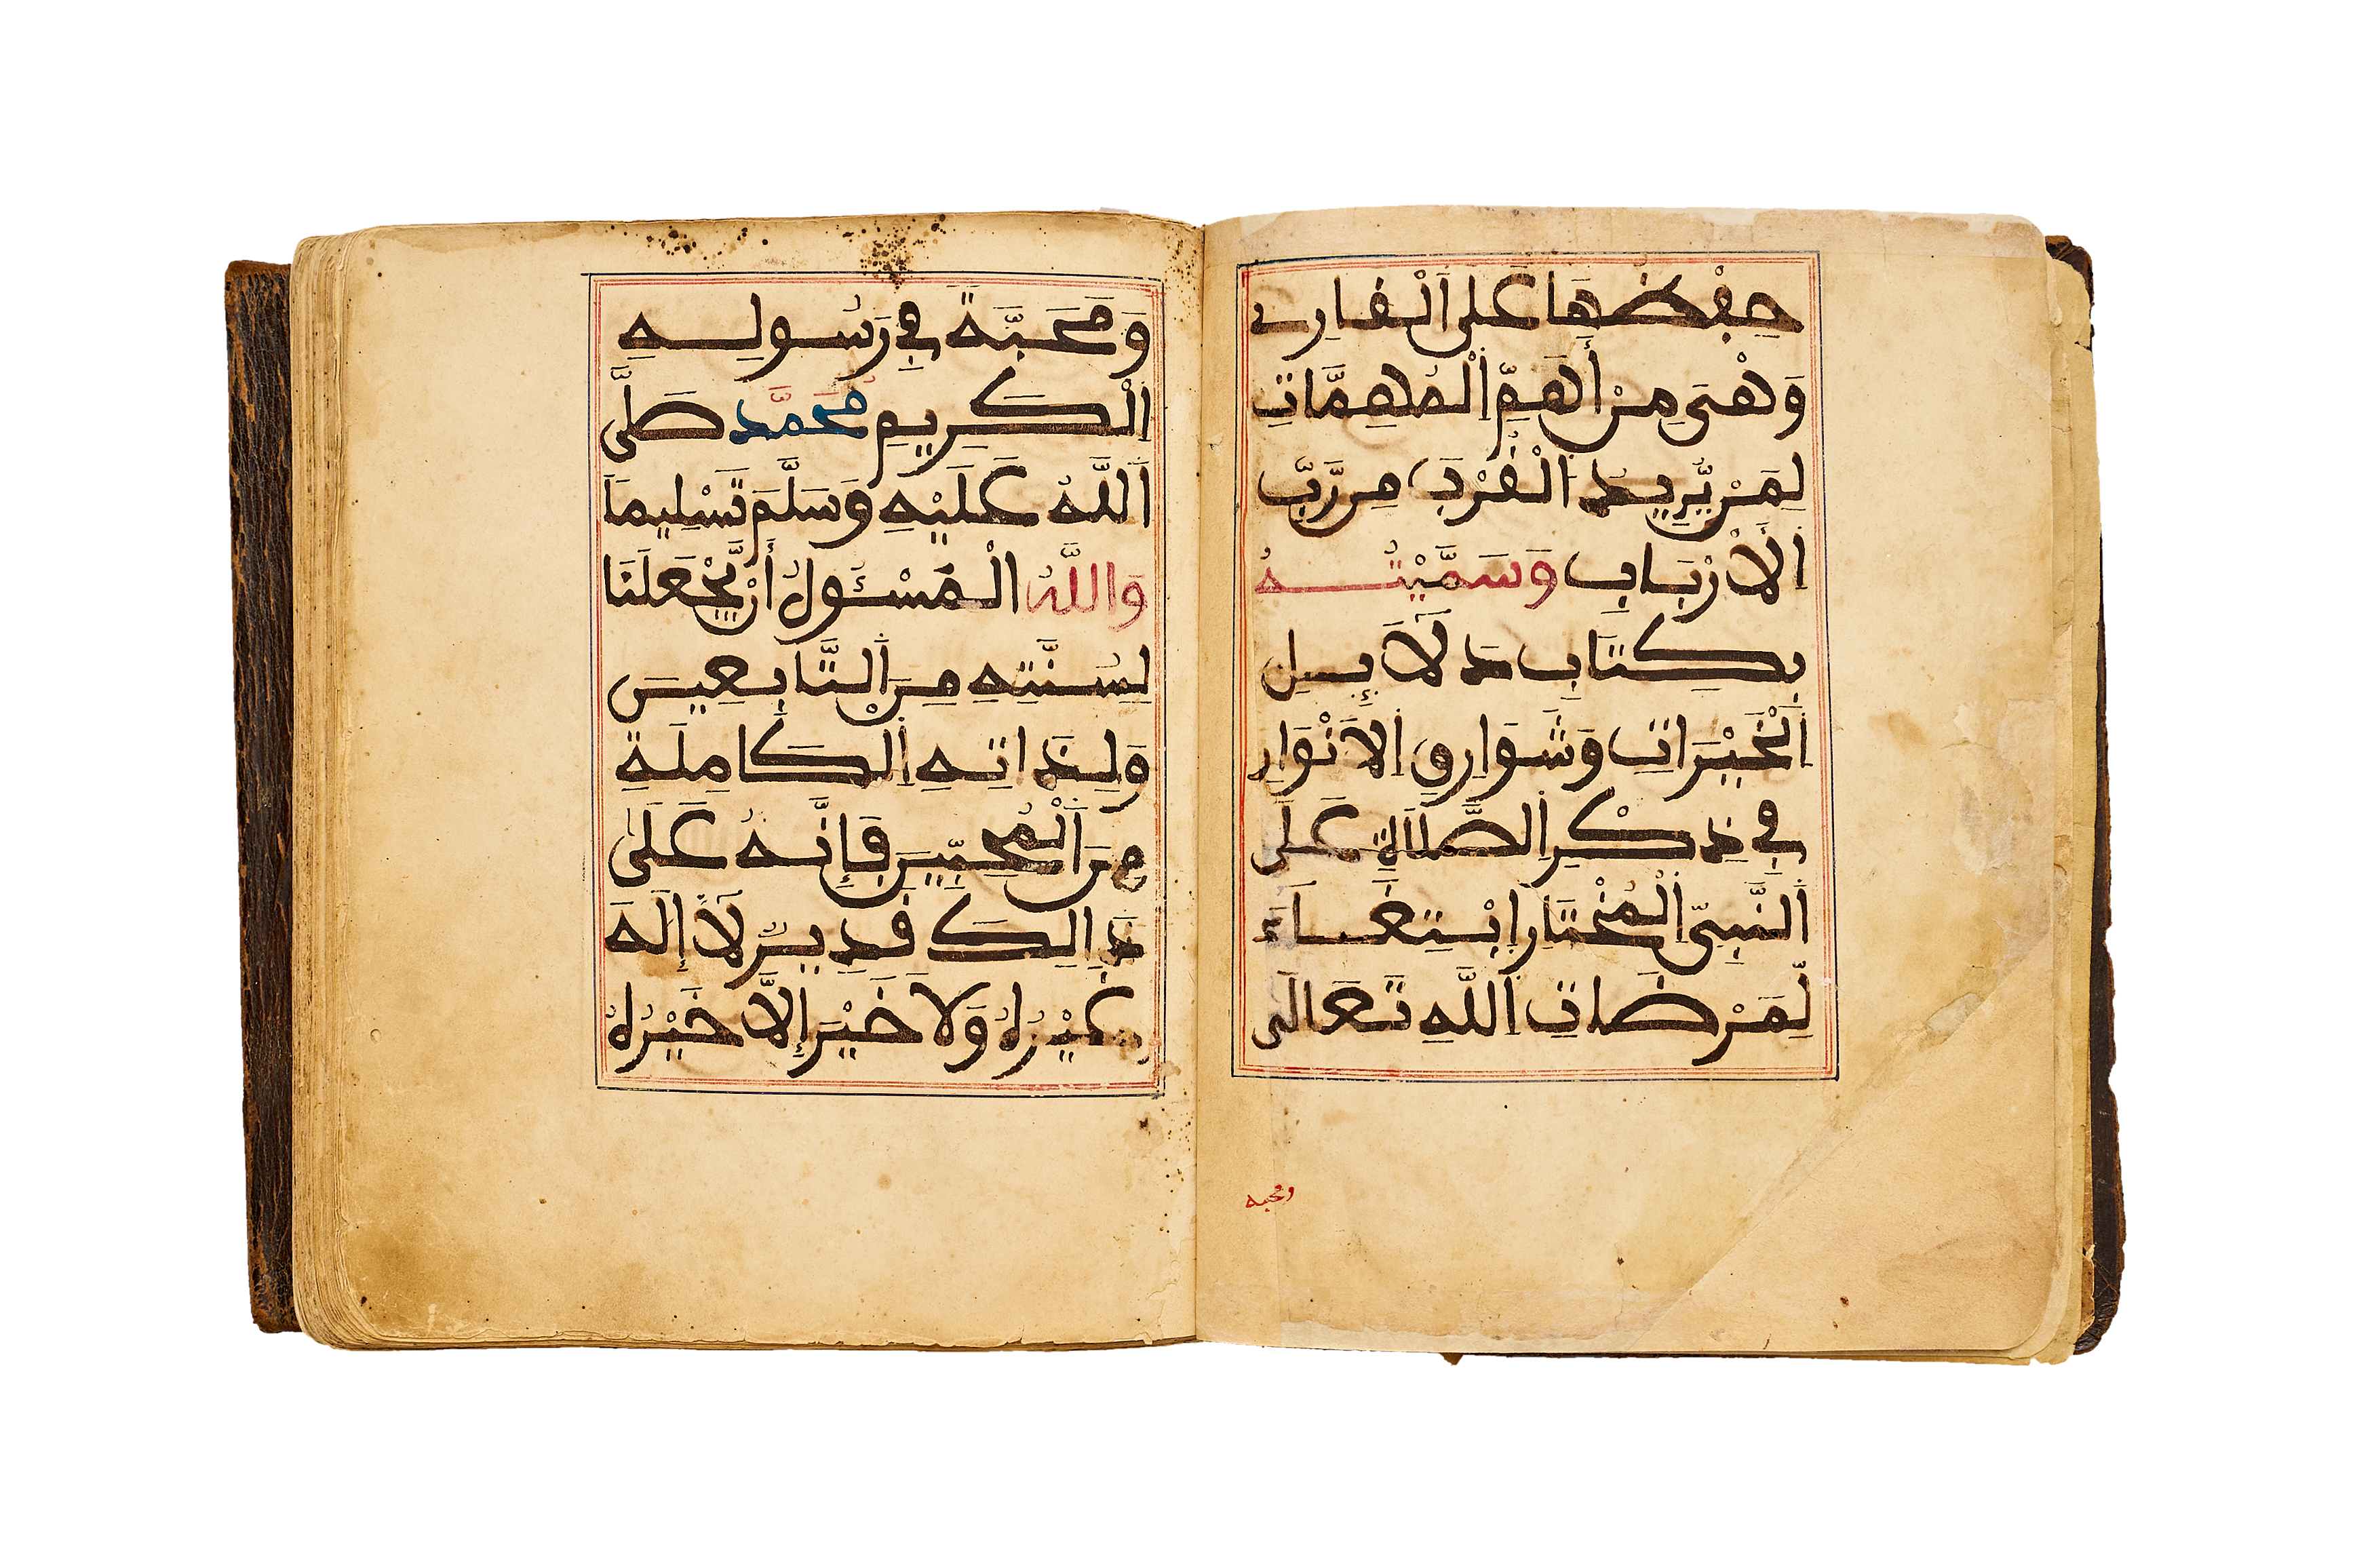 حِفْظُهَا عَلَى ٱلْقَارِئِ
وَهْىَ مِنْ أَهَمِّ ٱلْمُهِمَّاتِ
لِمَنْ يُّرِيدُ الْقُرْبَ مِن رَّبِّ
الْأَرْبَابِ وَسَمَّيْتُهُ
بِكِتَابِ دَلَآئِلِ
الْخَيْرَاتِ وَشَوَارِقِ الْأَنْوَارِ
فِي ذِكْرِ الصَّلَاةِ عَلَى
النَّبِيِّ الْمُخْتَارِ ابْتِغَاءَ
لِّمَرْضَاتِ اللَّهِ تَعَالَى
ومحبة
وَمَحَبَّةً فِي رَسُولِهِ
الْكَرِيمِ مُحَمَّدٍ صَلَّى
اَللَّهُ عَلَيْهِ وَسَلَّمَ تَسْلِيمًا
وَاللَّهُ الْمَسْـُٔولُ أَنْ يَّجْعَلَنَا
لِسُنَّتِهِ مِنَ التَّابِعِينَ
وَلِذَاتِهِ الْكَامِلَةِ
مِنَ الْمُحِبِّينَ فَإِنَّهُ عَلَى
ذَالِكَ قَدِيرٌ لَّا إِلَهَ
غَيْرُهُ وَلَا خَيْرَ إِلَّا خَيْرُهُ